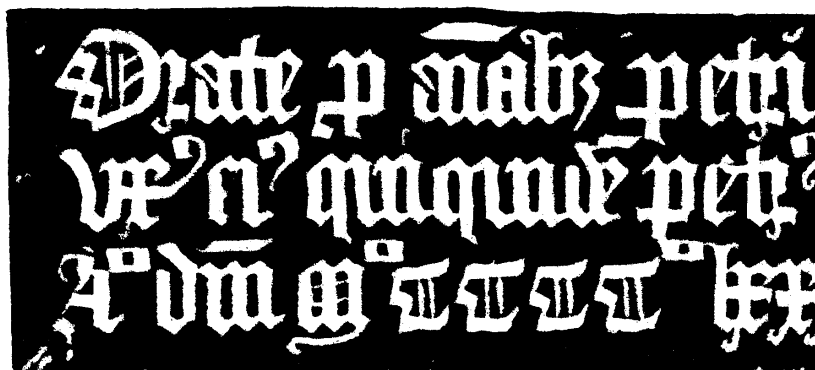 Orate p aiabȝ petri
vxʼ eiʼ qui quidē petrʼ
Aº dm̄ Mº CCCCº lxx